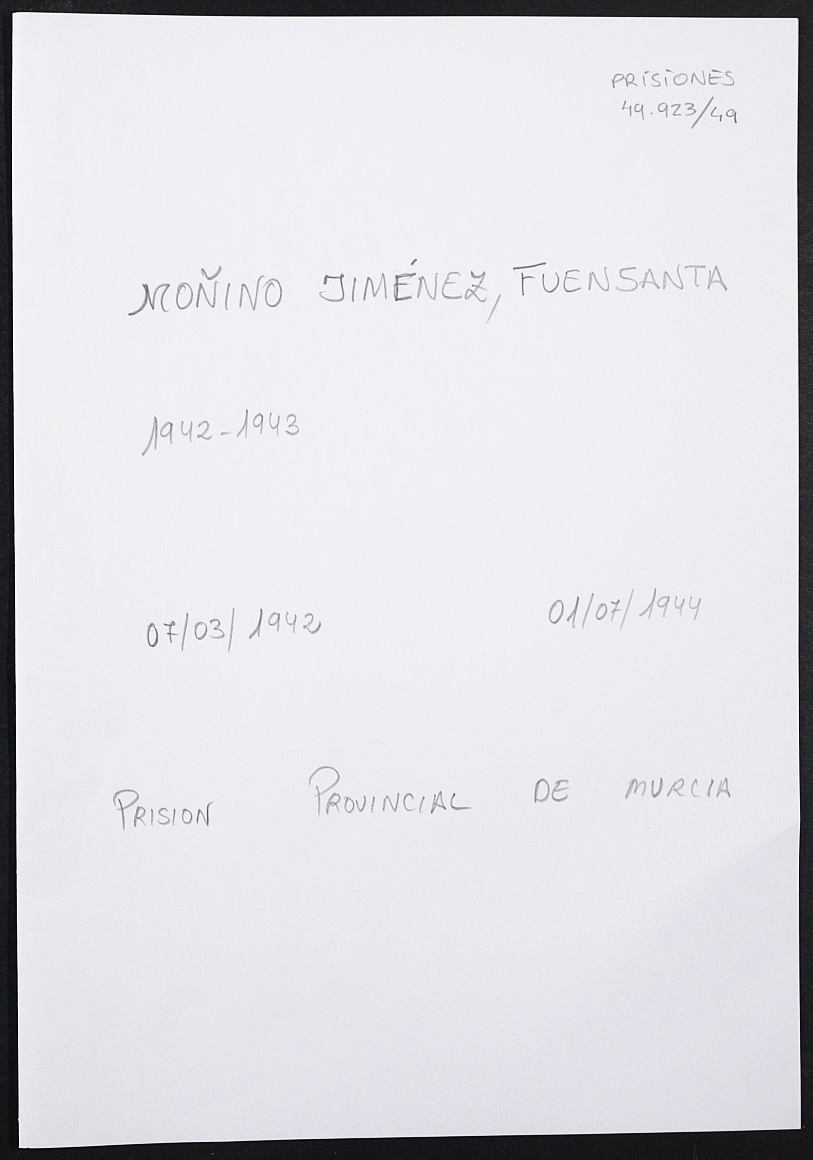 PRISIONES
49.923/49
MOÑINO JIMÉNEZ, FUENSANTA
1942-1943
07/03/1942 01/07/1944
PRISION PROVINCIAL DE MURCIA